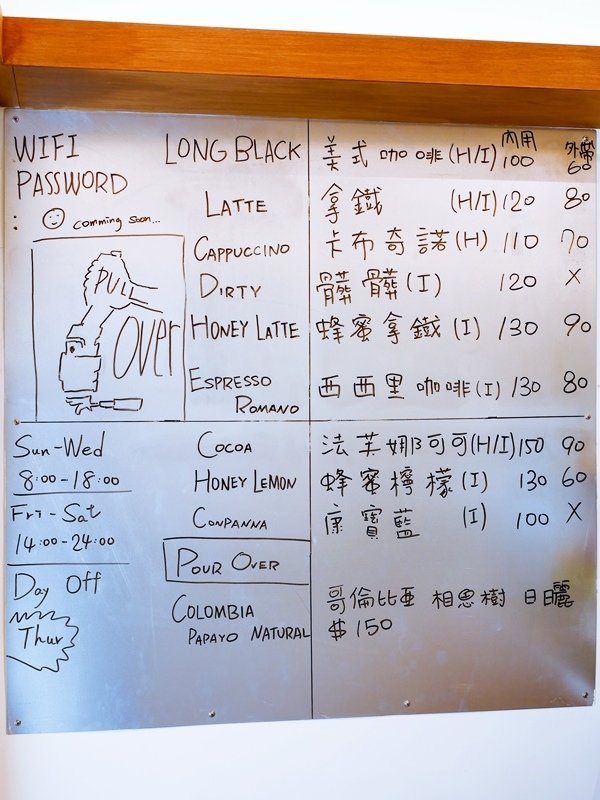 WIFI
PASSWORD
:
comming soon...
PULL
Over
LONG BLACK 美式咖啡(H/I) 內用 100 外帶 60
LATTE 拿鐵 (H/I) 120 80
CAPPUCCINO 卡布奇諾(H) 110 70
DIRTY 髒髒(I) 120 X
HONEY LATTE 蜂蜜拿鐵(I) 130 90
ESPRESSO
ROMANO 西西里咖啡(I) 130 80
Sun-Wed
8:00-18:00
Fri-Sat
14:00-24:00
Day Off
Thur
COCOA 法芙娜可可(H/I) 150 90
HONEY LEMON 蜂蜜檸檬(I) 130 60
CONPANNA 康寶藍 (I) 100 X
POUR OVER
COLOMBIA
PAPAYO NATURAL
哥倫比亞 相思樹 日曬
$150